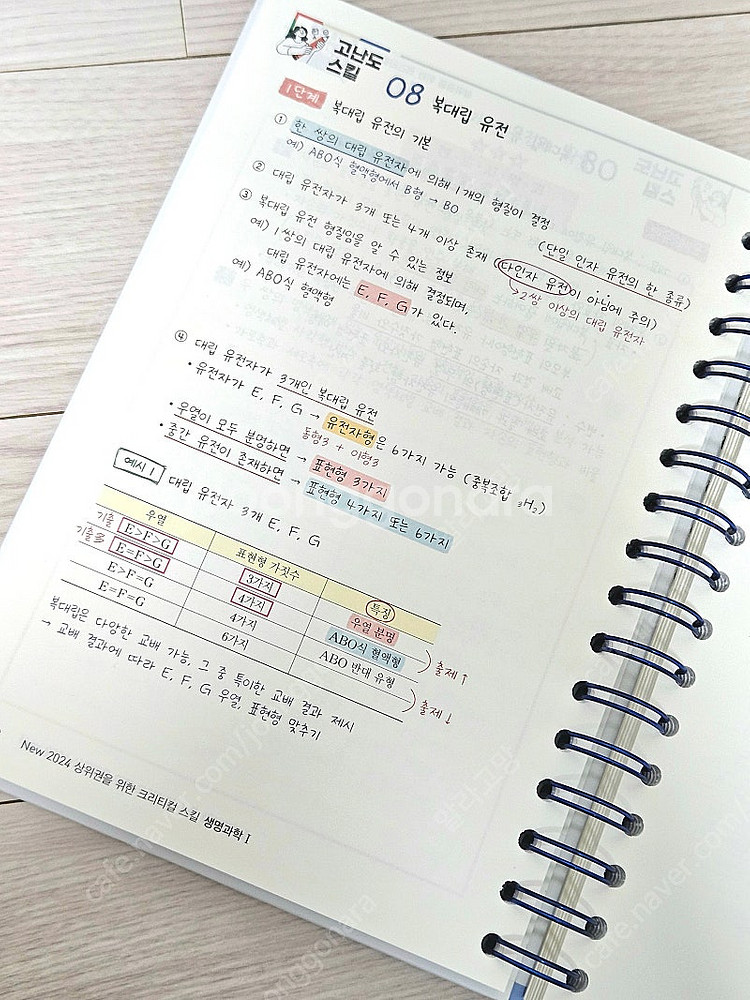 고난도
스킬 08 복대립 유전
1단계 복대립 유전의 기본
① 한 쌍의 대립 유전자에 의해 1개의 형질이 결정
예) ABO식 혈액형에서 B형 → BO
② 대립 유전자가 3개 또는 4개 이상 존재 (단일 인자 유전의 한 종류)
③ 복대립 유전 형질임을 알 수 있는 정보 (다인자 유전이 아님에 주의)
→2쌍 이상의 대립 유전자
예) 1쌍의 대립 유전자에 의해 결정되며,
대립 유전자에는 E, F, G가 있다.
예) ABO식 혈액형
④ 대립 유전자가 3개인 복대립 유전
• 유전자가 E, F, G → 유전자형은 6가지 가능 (중복조합 ₃H₂)
동형3 + 이형3
• 우열이 모두 분명하면 → 표현형 3가지
• 중간 유전이 존재하면 → 표현형 4가지 또는 6가지
예시 1 대립 유전자 3개 E, F, G
우열 표현형 가짓수 특징
기출 E>F>G 3가지 우열 분명
기출多 E=F>G 4가지 ABO식 혈액형 출제↑
E>F=G 4가지 ABO 반대 유형
E=F=G 6가지 출제↓
복대립은 다양한 교배 가능, 그 중 특이한 교배 결과 제시
→ 교배 결과에 따라 E, F, G 우열, 표현형 맞추기
New 2024 상위권을 위한 크리티컬 스킬 생명과학 I
joongonara
cafe.naver.com/joonggonara
cafe.naver.com